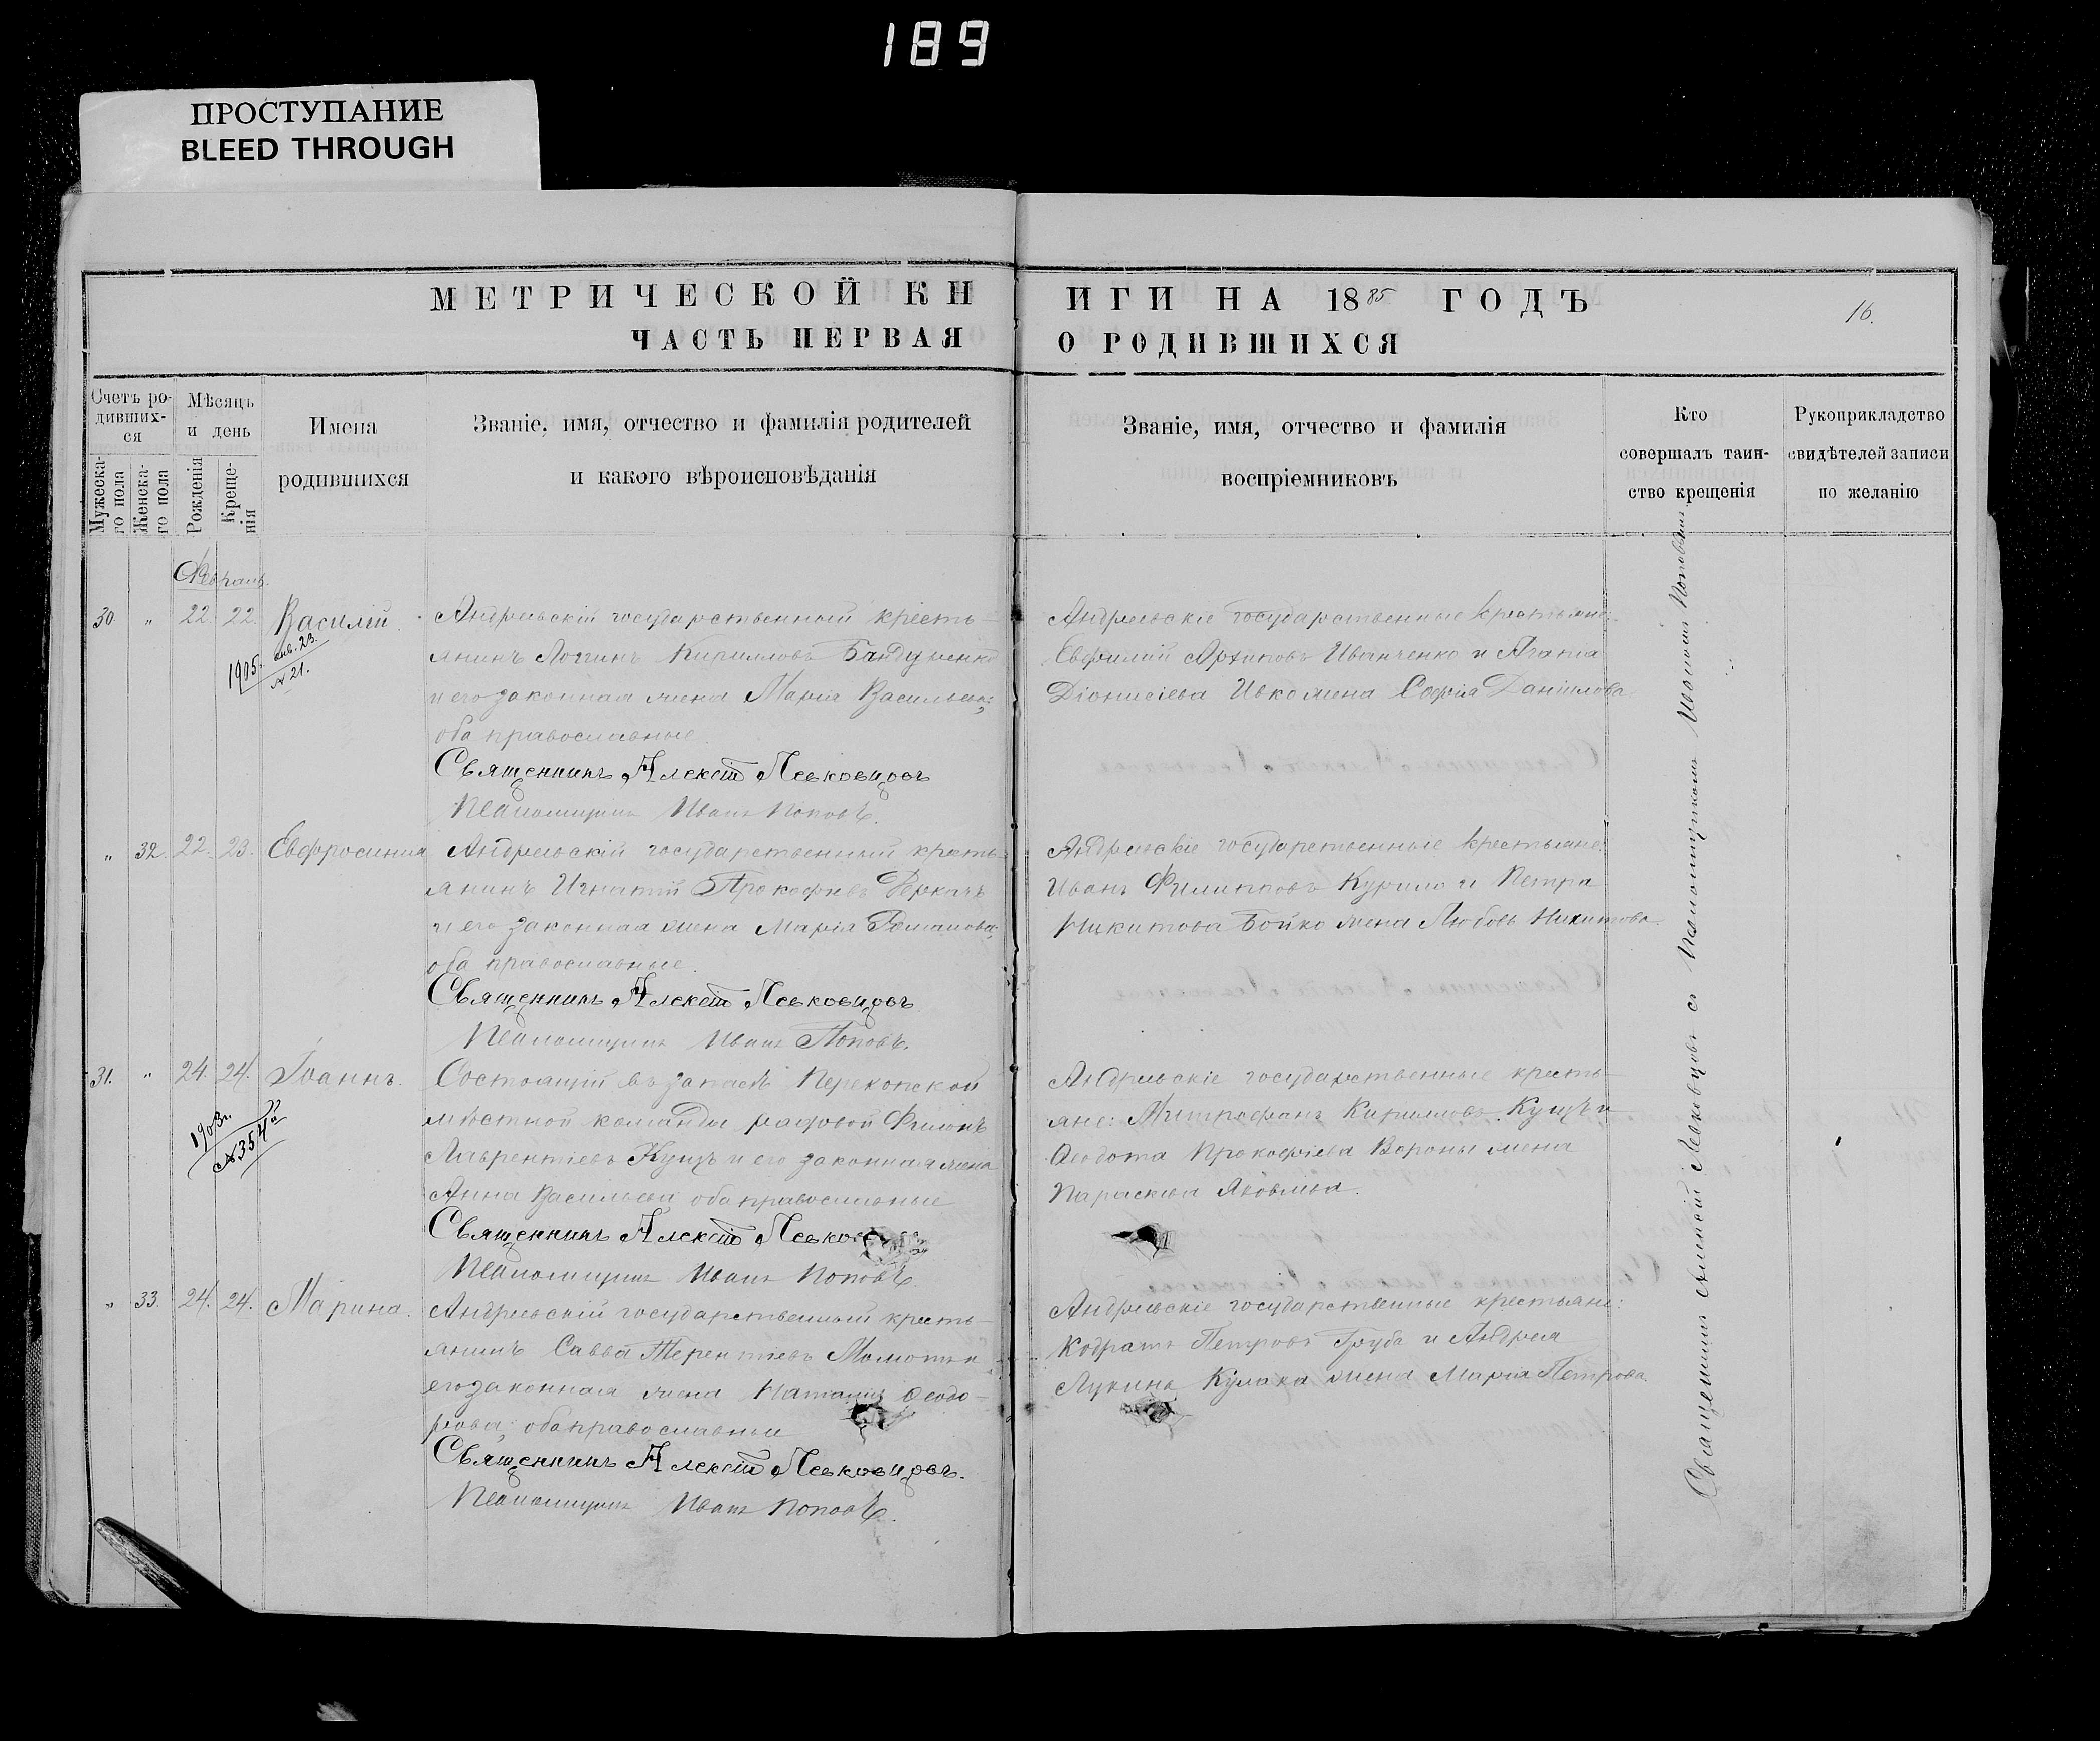 189
ПРОСТУПАНИЕ
BLEED THROUGH
МЕТРИЧЕСКОЙ КНИГИ НА 1885 ГОДЪ
16.
ЧАСТЬ ПЕРВАЯ О РОДИВШИХСЯ
Счетъ родившихся
Мужескаго пола
Женскаго пола
Мѣсяцъ и день
Рожденія
Крещенія
Имена
родившихся
Званіе, имя, отчество и фамилія родителей
и какого вѣроисповѣданія
Званіе, имя, отчество и фамилія
воспріемниковъ
Кто
совершалъ таин-
ство крещенія
Рукоприкладство
свидѣтелей записи
по желанію
Февраль.
30. " 22. 22. Василій.
1905. янв. 23.
№ 21.
Андреевскій государственный кресть-
янинъ Логгинъ Кирилловъ Бандуренко
и его законная жена Марія Васильева;
оба православные.
Священникъ Алексій Левковцовъ
Псаломщикъ Иванъ Поповъ.
Андреевскіе государственные крестьяне:
Евфимій Архиповъ Иванченко и Агапа
Діонисіева Ивко жена Софія Даніилова
" 32. 22. 23. Евфросинія
Андреевскій государственный кресть-
янинъ Игнатій Прокофіевъ Деркачъ
и его законная жена Марія Романова;
оба православные.
Священникъ Алексій Левковцовъ.
Псаломщикъ Иванъ Поповъ.
Андреевскіе государственные крестьяне:
Иванъ Филипповъ Курило и Петра
Никитова Бойко жена Любовь Никитова.
31. " 24. 24. Іоаннъ.
1903г.
№ 354
Состоящій въ запасѣ Перекопской
мѣстной команды рядовой Филонъ
Лаврентіевъ Куцъ и его законная жена
Анна Васильева, оба православные
Священникъ Алексій Левко
Псаломщикъ Иванъ Поповъ.
Андреевскіе государственные кресть-
яне: Митрофанъ Кирилловъ Куцъ и
Ѳеодота Прокофіева Вороны жена
Параскева Яковлева.
" 33. 24. 24. Марина.
Андреевскій государственный кресть-
янинъ Савва Терентіевъ Момотъ и
его законная жена Наталія Ѳеодо-
рова, оба православные
Священникъ Алексій Левковцовъ.
Псаломщикъ Иванъ Поповъ.
Андреевскіе государственные крестьяне:
Кодратъ Петровъ Груба и Андрея
Лукина Кулака жена Марія Петрова
Священникъ Алексій Левковцовъ съ Псаломщикомъ Иваномъ Поповымъ.